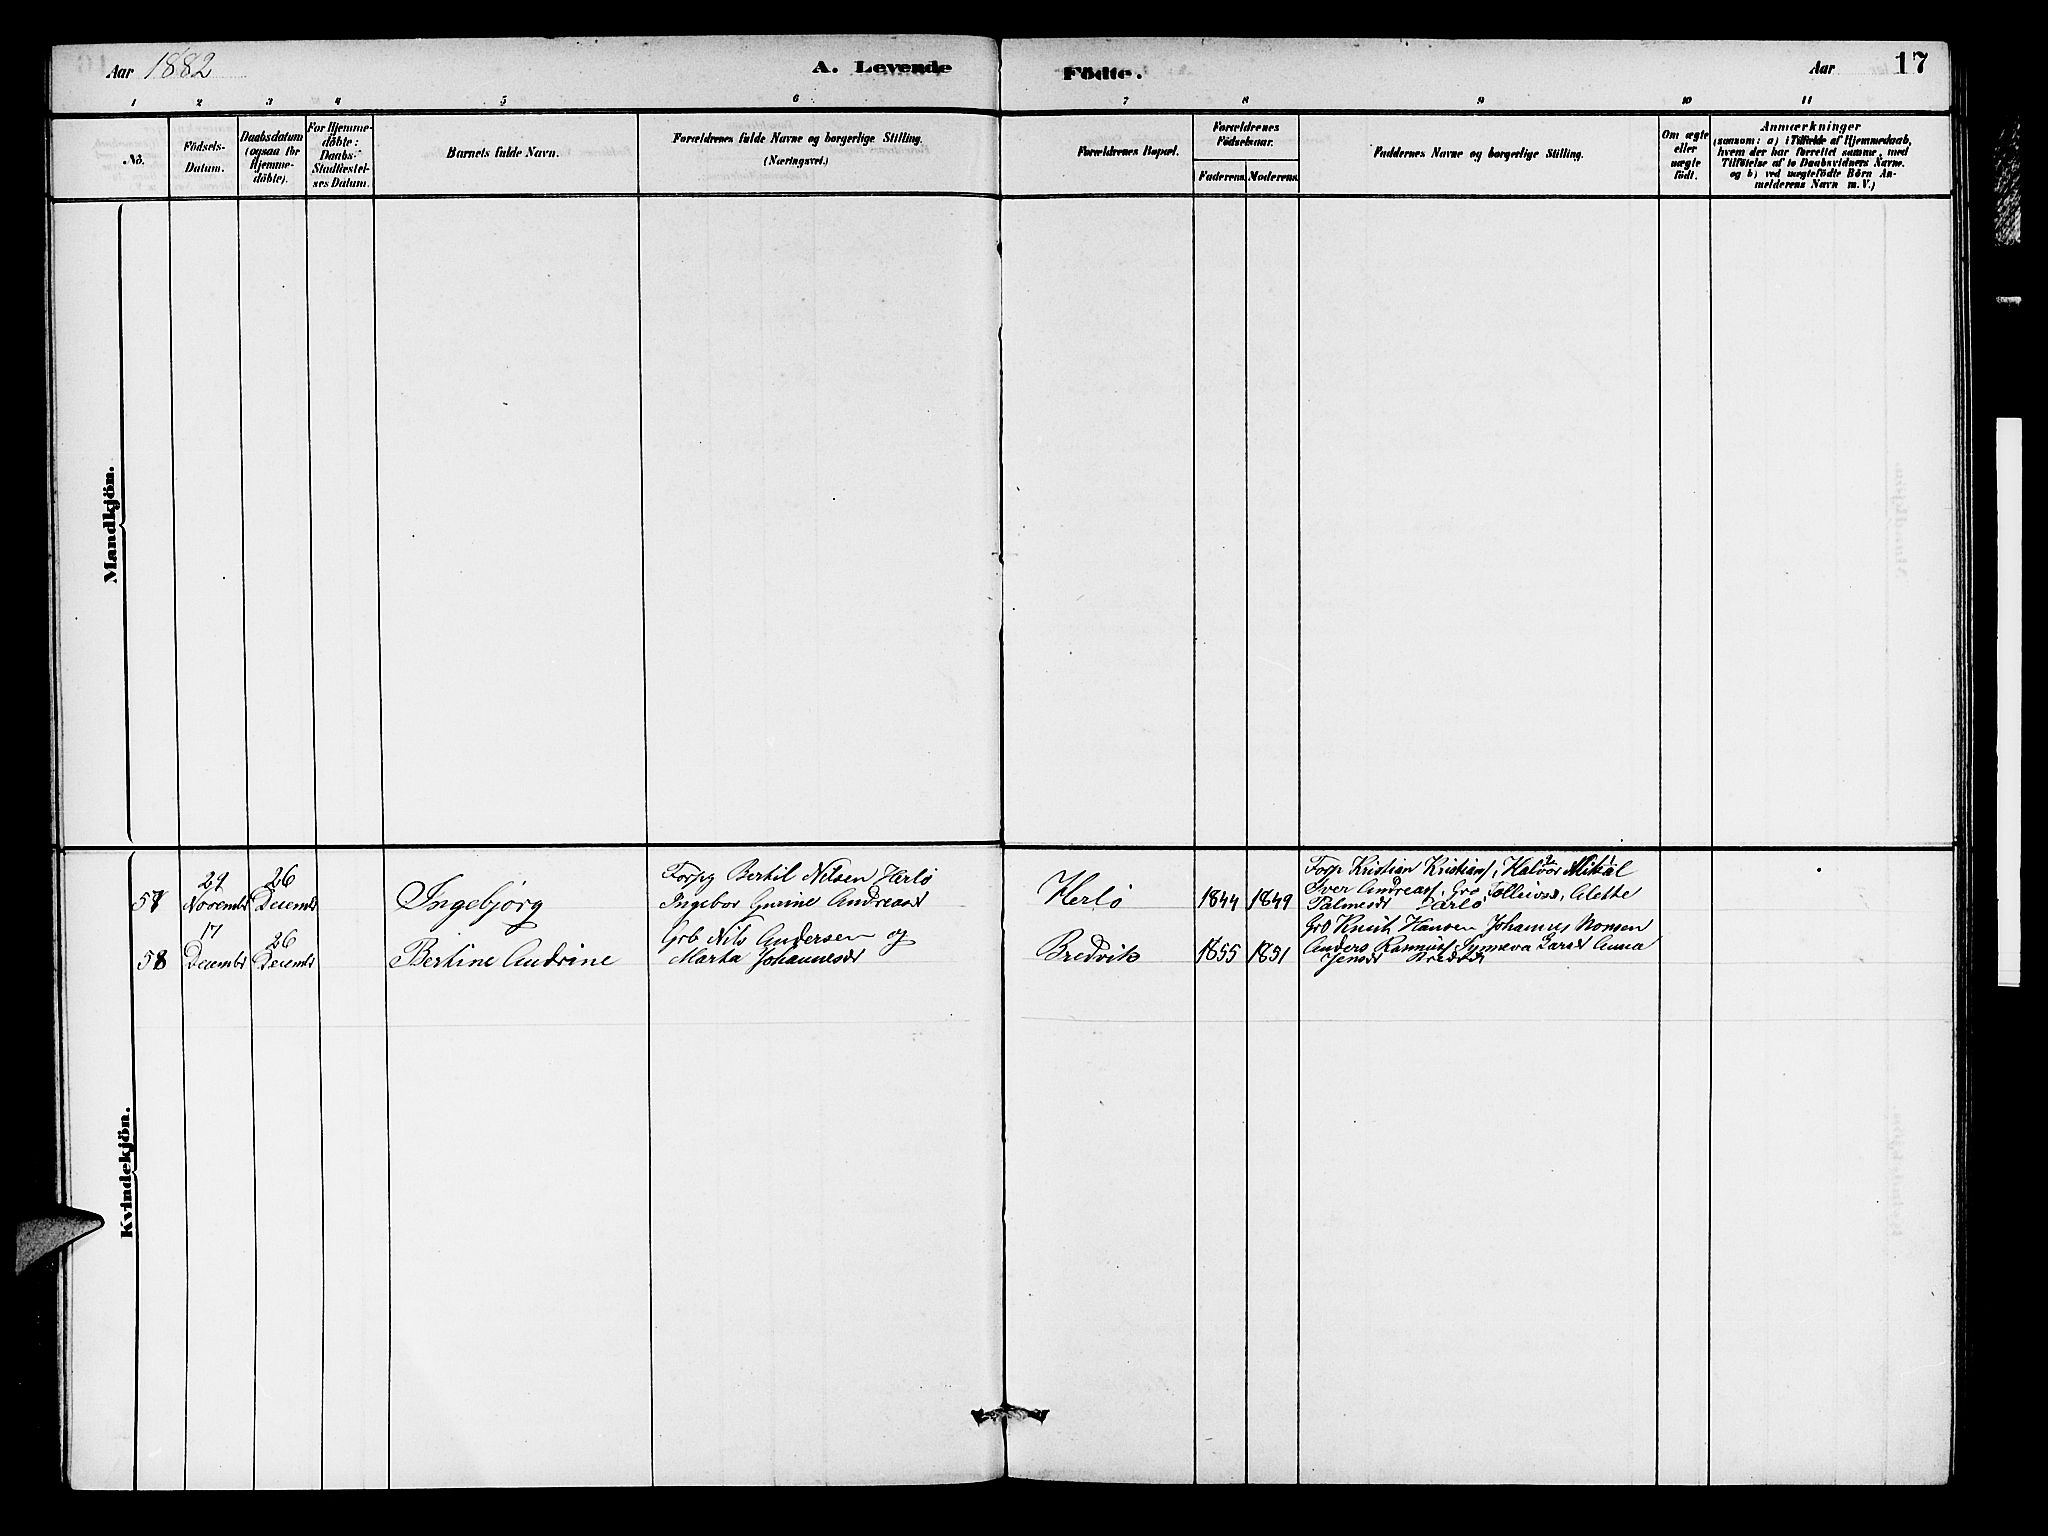 Aar 1882
A. Levende
Födte.
Aar
17
1
2
3
4
5
6
7
8
9
10
11
No.
Födsels-
Datum.
Daabsdatum
(ogsaa for
Hjemme-
döbte).
For Hjemme-
döbte:
Daabs-
Stadfæstel-
ses Datum.
Barnets fulde Navn.
Forældrenes fulde Navne og borgerlige Stilling.
(Næringsvei.)
Forældrenes Bopæl.
Forældrenes
Födselsaar.
Faderens.
Moderens.
Faddernes Navne og borgerlige Stilling.
Om ægte
eller
uægte
födt.
Anmærkninger
(saasom: a) i Tilfælde af Hjemmedaab,
hvem der har forrettet samme, med
Tilföielse af to Daabsvidners Navne.
og b) ved uægtefödte Börn An-
melderens Navn m. V.)
Mandkjön.
Kvindekjön.
57
29
Novembr
26
Decembr
Ingebjörg
Forpg Bertil Nilsen Herlö
Ingebor Gurine Andreasd
Herlö
1844
1849
Forp Kristian Kristians, Halvor Mikkal
Iver Andreas, Gro Tolleivsd, Alette
Palmesd
58
17
Decembr
26
Decembr
Bertine Andrine
Grb Nils Andersen og
Marta Johannesd
Bredvik
1855
1851
Grb Knut Hansen Johannes Monsen
Anders Rasmus Synneva Larsd Anna
Jensd Bredvik